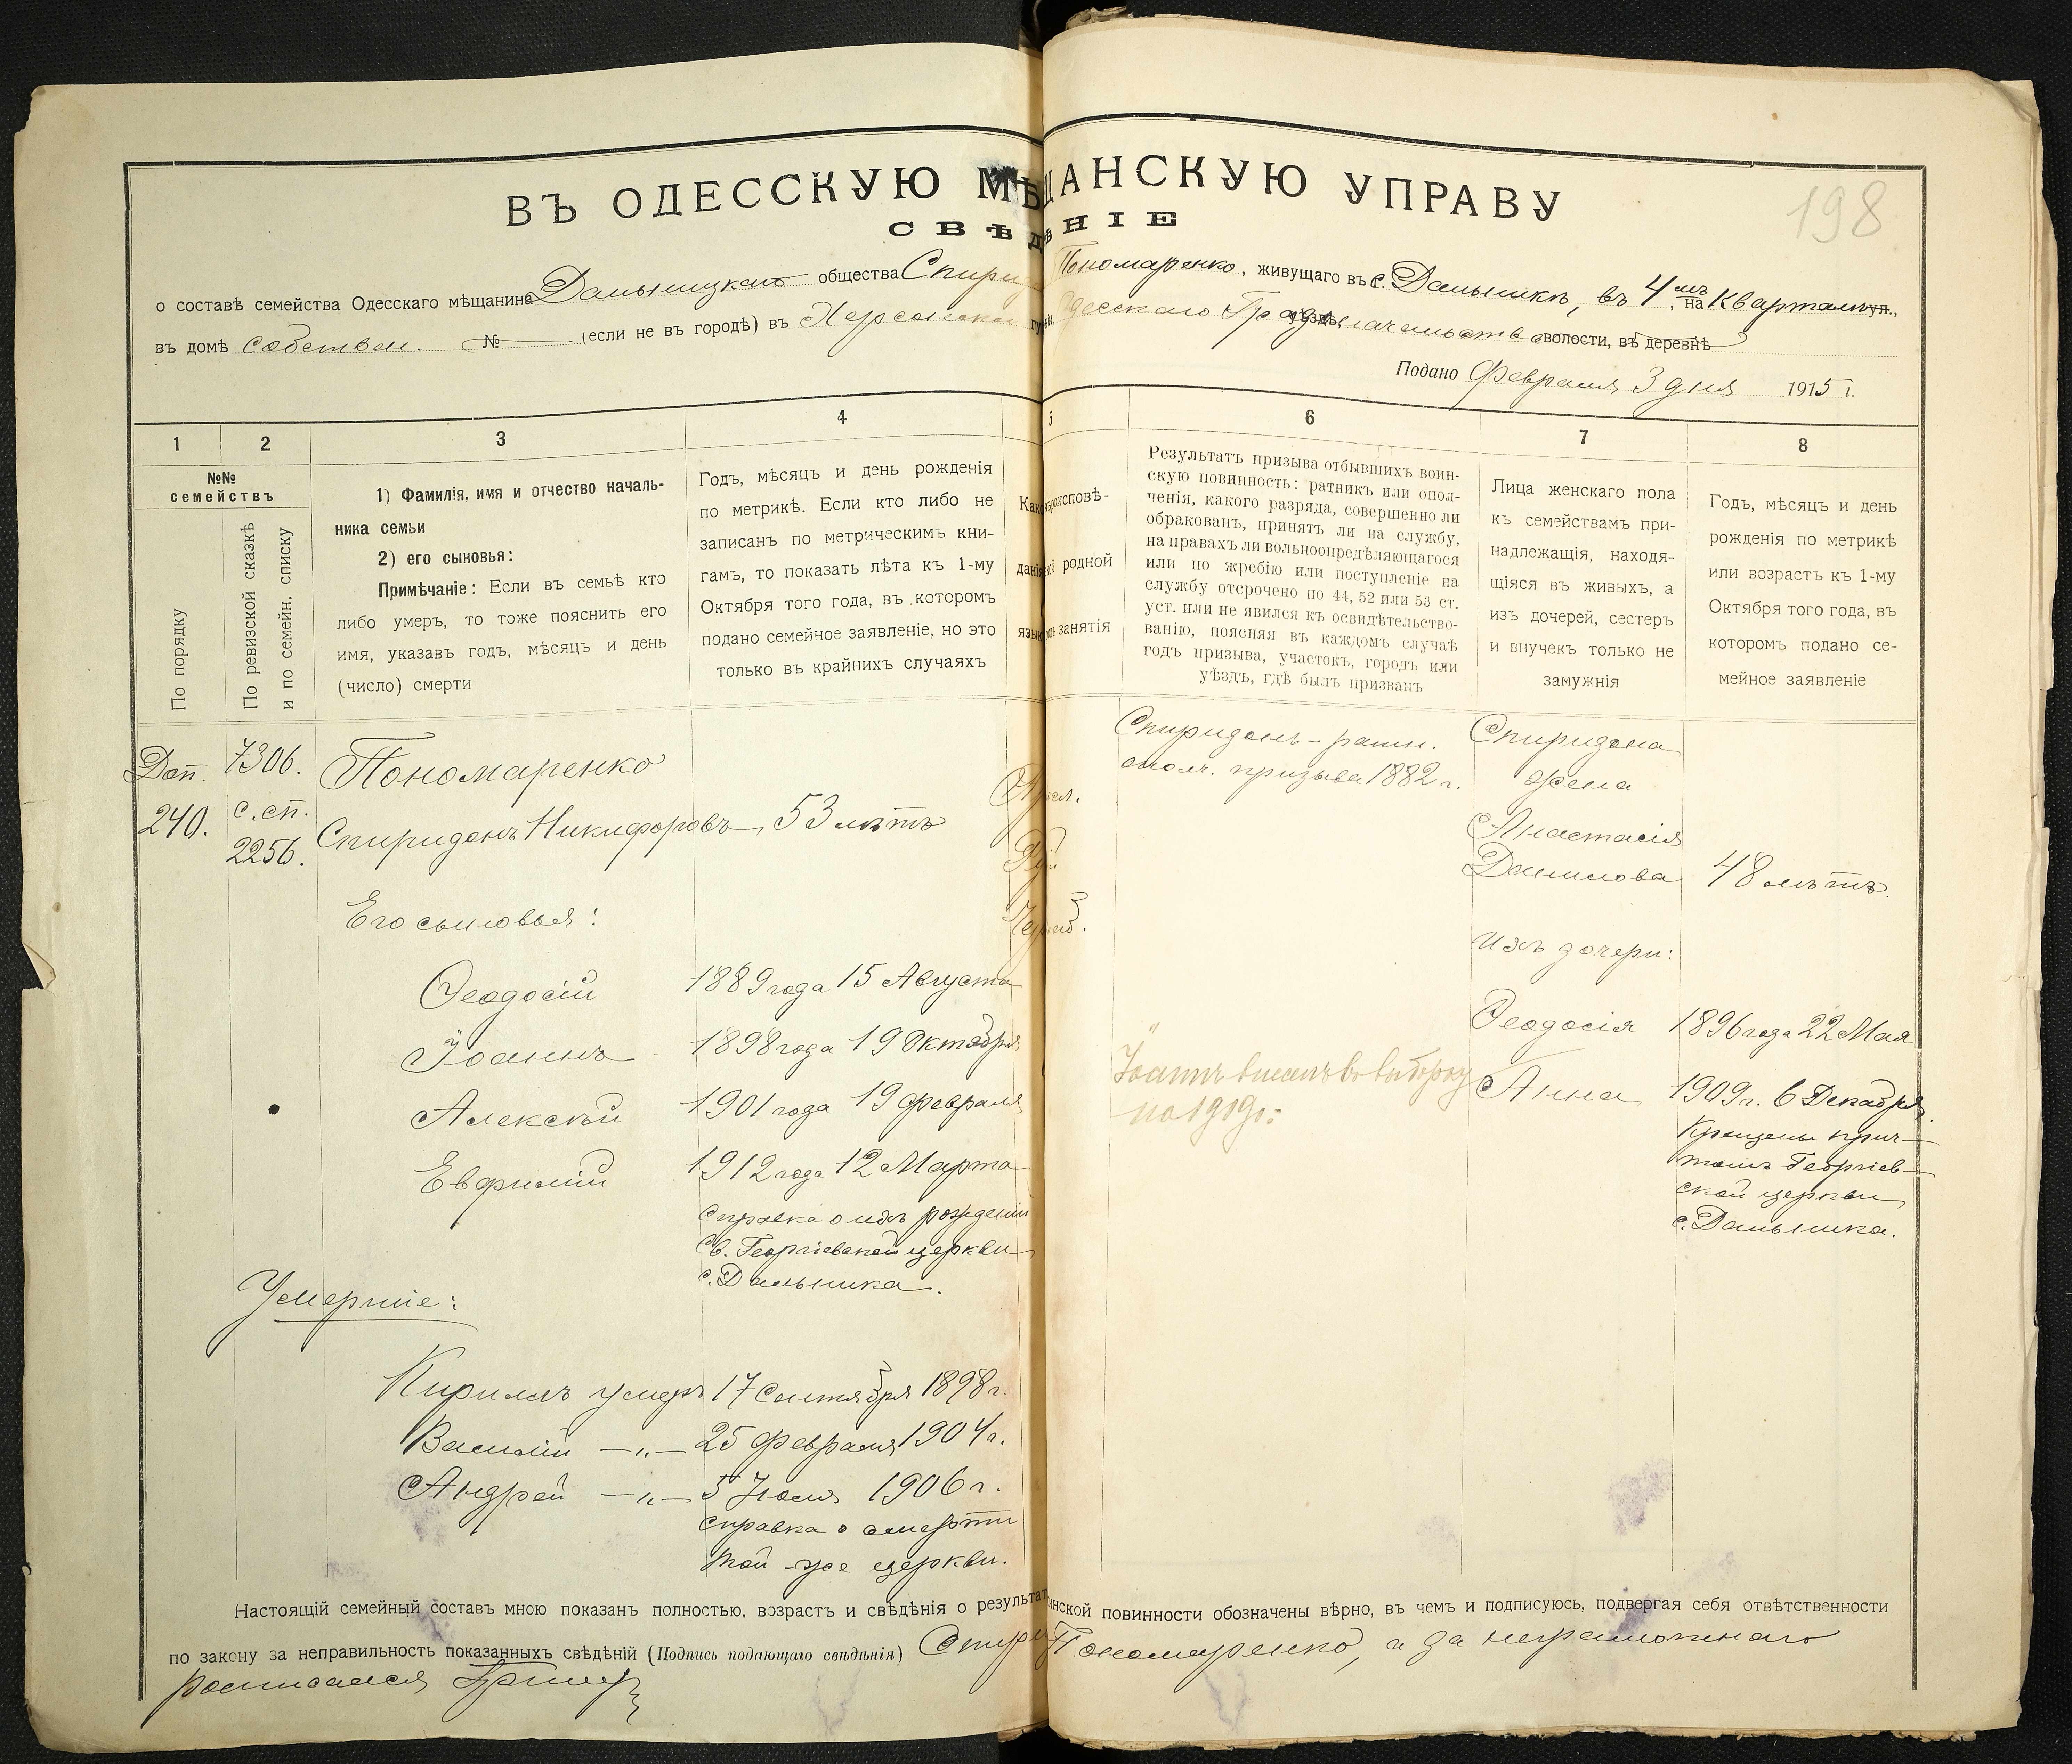 ВЪ ОДЕССКУЮ МѢЩАНСКУЮ УПРАВУ
198
СВѢДѢНІЕ
о составѣ семейства Одесскаго мѣщанина Дальницкаго общества Спири Пономаренко, живущаго въ с. Дальникѣ, въ 4мъ на Кварталѣ ул.,
въ домѣ собствен. № (если не въ городѣ) въ Херсонской губерніи, Одесскаго Градоначальства уѣздѣ, волости, въ деревнѣ
Подано Февраля 3 дня 1915 г.
1 2 3 4 5 6 7 8
№№ семействъ
По порядку
По ревизской сказкѣ и по семейн. списку
1) Фамилія, имя и отчество началь-
ника семьи
2) его сыновья:
Примѣчаніе: Если въ семьѣ кто
либо умеръ, то тоже пояснить его
имя, указавъ годъ, мѣсяцъ и день
(число) смерти
Годъ, мѣсяцъ и день рожденія
по метрикѣ. Если кто либо не
записанъ по метрическимъ кни-
гамъ, то показать лѣта къ 1-му
Октября того года, въ которомъ
подано семейное заявленіе, но это
только въ крайнихъ случаяхъ
вѣроисповѣ-
родной
занятія
Результатъ призыва отбывшихъ воин-
скую повинность: ратникъ или опол-
ченія, какого разряда, совершенно ли
обракованъ, принятъ ли на службу,
на правахъ ли вольноопредѣляющагося
или по жребію или поступленіе на
службу отсрочено по 44, 52 или 53 ст.
уст. или не явился къ освидѣтельство-
ванію, поясняя въ каждомъ случаѣ
годъ призыва, участокъ, городъ или
уѣздъ, гдѣ былъ призванъ
Лица женскаго пола
къ семействамъ при-
надлежащія, находя-
щіяся въ живыхъ, а
изъ дочерей, сестеръ
и внучекъ только не
замужнія
Годъ, мѣсяцъ и день
рожденія по метрикѣ
или возрастъ къ 1-му
Октября того года, въ
которомъ подано се-
мейное заявленіе
Доп.
240.
7306.
с. сп.
2256.
Пономаренко
Спиридонъ Никифоровъ 53 лѣтъ
Его сыновья:
Ѳеодосій 1889 года 15 Августа
Іоаннъ 1898 года 19 Октября
Алексѣй 1901 года 19 Февраля
Евфимій 1912 года 12 Марта
Справка о ихъ рожденіи
Св. Георгіевской церкви
с. Дальника.
Умершіе:
Кириллъ умеръ 17 Сентября 1898 г.
Василій —"— 25 Февраля 1904 г.
Андрей —"— 5 Іюля 1906 г.
Справка о смерти
той-же церкви.
Спиридонъ - ратн.
ополч. призыва 1882 г.
Іоаннъ внесенъ въ выборку
по 1919 г.
Спиридона
жена
Анастасія
Данилова 48 лѣтъ.
Ихъ дочери:
Ѳеодосія 1896 года 22 Мая
Анна 1909 г. 6 Декабря
Крещены прич-
томъ Георгіев-
ской церкви
с. Дальника.
Настоящій семейный составъ мною показанъ полностью, возрастъ и свѣдѣнія о результат инской повинности обозначены вѣрно, въ чемъ и подписуюсь, подвергая себя отвѣтственности
по закону за неправильность показанныхъ свѣдѣній (Подпись подающаго свѣдѣнія) Спири Пономаренко, а за неграмотнаго
росписался